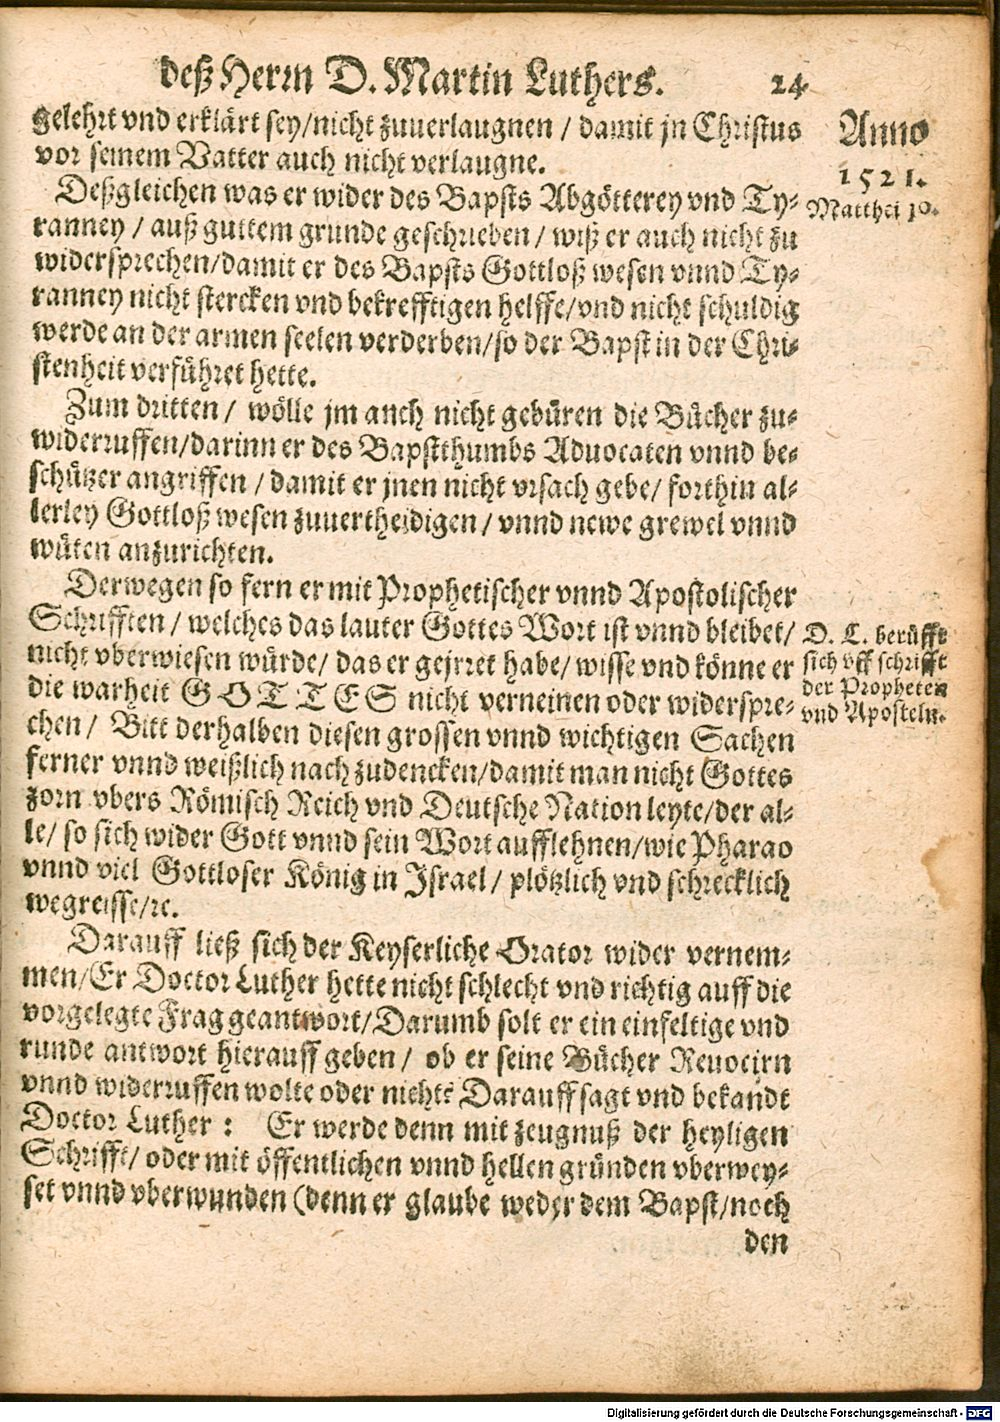 deß Herrn D. Martin Luthers. 24
gelehrt vnd erklärt sey/nicht zuuerlaugnen / damit jn Christus
vor seinem Vatter auch nicht verlaugne.
Anno
1521.
Matthei 10.
Deßgleichen was er wider des Bapsts Abgötterey vnd Ty-
ranney / auß guttem grunde geschrieben / wiß er auch nicht zu
widersprechen/damit er des Bapsts Gottloß wesen vnnd Ty-
ranney nicht stercken vnd bekrefftigen helffe/vnd nicht schuldig
werde an der armen seelen verderben/so der Bapst in der Chri-
stenheit verführet hette.
Zum dritten / wölle jm auch nicht gebüren die Bücher zu-
widerruffen/darinn er des Bapstthumbs Aduocaten vnnd be-
schützer angriffen / damit er jnen nicht vrsach gebe/ forthin al-
lerley Gottloß wesen zuuertheidigen / vnnd newe grewel vnnd
wüten anzurichten.
Derwegen so fern er mit Prophetischer vnnd Apostolischer
Schrifften / welches das lauter Gottes Wort ist vnnd bleibet/
nicht vberwiesen würde/ das er gejrret habe/ wisse vnd könne er
die warheit GOTTES nicht verneinen oder widerspre-
chen / Bitt derhalben diesen grossen vnnd wichtigen Sachen
ferner vnnd weißlich nach zudencken/damit man nicht Gottes
zorn vbers Römisch Reich vnd Deutsche Nation leyte/der al-
le/ so sich wider Gott vnnd sein Wort aufflehnen/wie Pharao
vnnd viel Gottloser König in Israel / plötzlich vnd schrecklich
wegreisse/rc.
D. L. berüfft
sich vff schrifft
der Propheten
vnd Aposteln.
Darauff ließ sich der Keyserliche Orator wider vernem-
men/Er Doctor Luther hette nicht schlecht vnd richtig auff die
vorgelegte Frag geantwort/Darumb solt er ein einfeltige vnd
runde antwort hierauff geben / ob er seine Bücher Reuocirn
vnnd widerruffen wolte oder nicht? Darauff sagt vnd bekandt
Doctor Luther : Er werde denn mit zeugnuß der heyligen
Schrifft/ oder mit öffentlichen vnnd hellen gründen vberwey-
set vnnd vberwunden (denn er glaube weder dem Bapst/noch
den
Digitalisierung gefördert durch die Deutsche Forschungsgemeinschaft - DFG